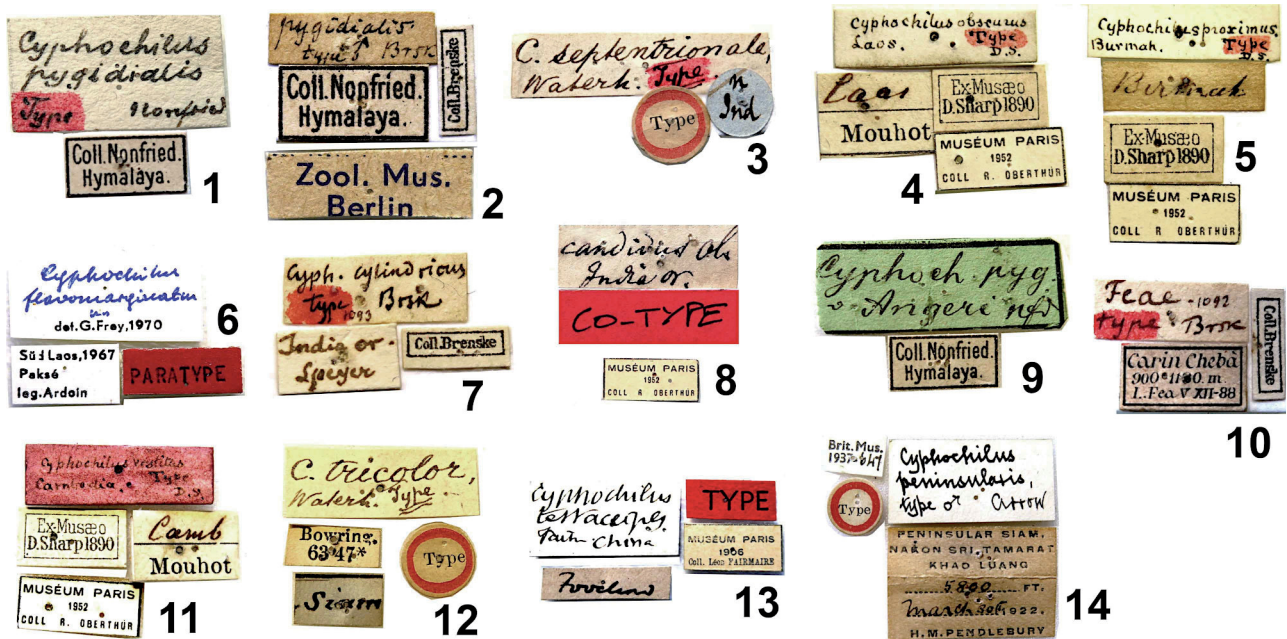 Cyphochilus
pygidialis
Type Nonfried
Coll. Nonfried.
Hymalaya.
1
pygidialis
type Brsk
Coll. Nonfried.
Hymalaya.
Coll. Brenske
Zool. Mus.
Berlin
2
C. septentrionale,
Waterh. Type
Type
n
Ind
3
Cyphochilus obscurus
Laos. Type
D.S.
Laos
Mouhot
Ex-Musæo
D. Sharp 1890
MUSÉUM PARIS
1952
COLL R. OBERTHÜR
4
Cyphochilus proximus.
Burmah. Type
D.S.
Birmah
Ex-Musæo
D. Sharp 1890
MUSÉUM PARIS
1952
COLL R OBERTHÜR
5
Cyphochilus
flavomarginatus
det. G. Frey, 1970
Süd Laos, 1967
Paksé
leg. Ardoin
PARATYPE
6
Cyph. cylindricus
type Brsk
1093
India or.
Speyer
Coll. Brenske
7
candidus Ol.
India or.
CO-TYPE
MUSÉUM PARIS
1952
COLL R OBERTHÜR
8
Cyphoch. pyg.
v. Angeri nfd
Coll. Nonfried.
Hymalaya.
9
Feae 1092
type Brsk
Carin Chebà
900-1100. m
L. Fea V XII-88
Coll. Brenske
10
Cyphochilus vestitus
Cambodia. Type
D.S.
Ex-Musæo
D. Sharp 1890
Camb
Mouhot
MUSÉUM PARIS
1952
COLL R. OBERTHÜR
11
C. tricolor,
Waterh. Type
Bowring.
63 47*
Siam
Type
12
Cyphochilus
testaceipes
Fairm China
TYPE
MUSÉUM PARIS
1906
Coll. Léon FAIRMAIRE
13
Brit. Mus.
1937-647
Type
Cyphochilus
peninsularis,
type ♂ Arrow
PENINSULAR SIAM.
NAKON SRI TAMARAT
KHAO LUANG
5800 FT.
March 1922.
H.M. PENDLEBURY
14